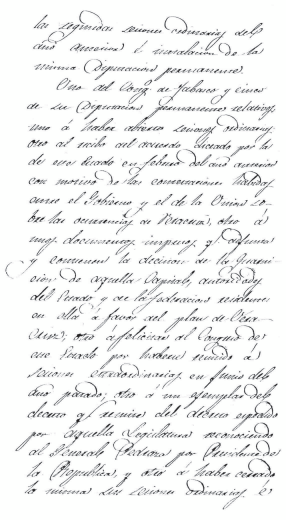 las segundas sesiones ordinarias del
año anterior é instalacion de la
misma Diputacion permanente.
Uno del Congº de Tabasco y cinco
de su Diputacion permanente relativos
uno á haber abierto sesiones ordinarias,
otro al recibo del acuerdo dictado por la
de ese Estado en febrero del año anterior
con motivo de las contestaciones habidas
entre el Gobierno y el de la Union so-
bre las ocurrencias de Veracruz, otro á
unos documentos impresos qe adjunta
y contienen la decision de la Guarni-
cion de aquella Capital, autoridades
del Estado y de la federacion residentes
en ella á favor del plan de Vera-
cruz; otro á felicitar al Congreso de
ese Estado por haberse reunido á
sesiones extraordinarias en Junio del
año pasado; otro á un ejemplar del
decreto qe remite del decreto expedido
por aquella Legislatura reconociendo
al General Pedraza por Presidente de
la Republica, y otro á haber cerrado
la misma sus sesiones ordinarias é